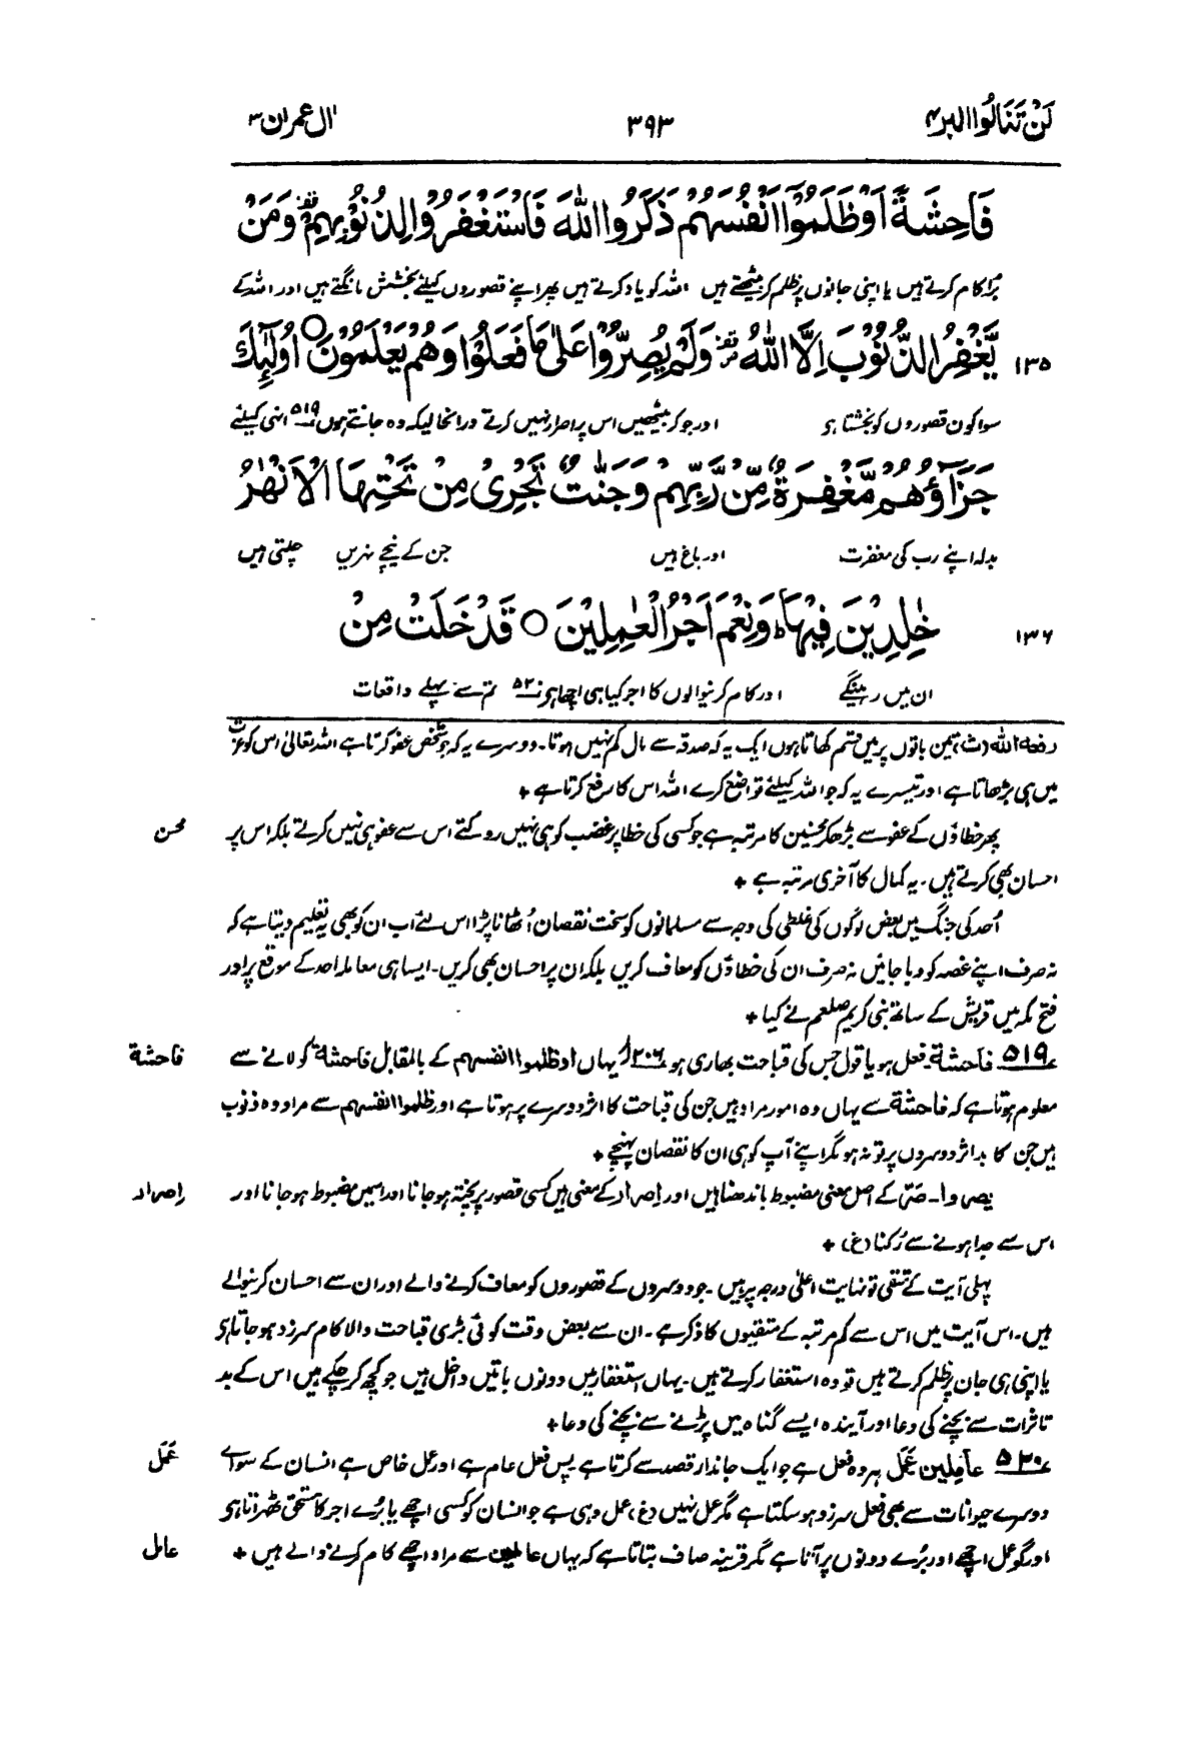 لَنْ تَنَالُوا البر ۴ ۳۹۳ اٰل عمرٰن ۳
فَاحِشَةً اَوْ ظَلَمُوْۤا اَنْفُسَهُمْ ذَكَرُوا اللّٰهَ فَاسْتَغْفَرُوْا لِذُنُوْبِهِمْ۪ وَمَنْ
بُرا کام کرتے ہیں یا اپنی جانوں پر ظلم کر بیٹھتے ہیں اللہ کو یاد کرتے ہیں پھر اپنے قصوروں کیلئے بخشش مانگتے ہیں اور اللہ کے
۱۳۵ يَّغْفِرُ الذُّنُوْبَ اِلَّا اللّٰهُ۪ وَلَمْ يُصِرُّوْا عَلٰى مَا فَعَلُوْا وَهُمْ يَعْلَمُوْنَ ○ اُولٰٓئِكَ
سوا کون قصوروں کو بخشتا ہو اور جو کر بیٹھیں اس پر اصرار نہیں کرتے درانحالیکہ وہ جانتے ہوں ۵۱۹ انہی کیلئے
جَزَآؤُهُمْ مَّغْفِرَةٌ مِّنْ رَّبِّهِمْ وَجَنّٰتٌ تَجْرِيْ مِنْ تَحْتِهَا الْاَنْهٰرُ
بدلہ اپنے رب کی مغفرت اور باغ ہیں جن کے نیچے نہریں چلتی ہیں
۱۳۶ خٰلِدِيْنَ فِيْهَا ؕ وَنِعْمَ اَجْرُ الْعٰمِلِيْنَ ○ قَدْ خَلَتْ مِنْ
ان میں رہینگے اور کام کرنیوالوں کا اجر کیا ہی اچھا ہو ۵۲۰ تم سے پہلے واقعات
رفعه الله (ث) تین باتوں پر میں قسم کھاتا ہوں ایک یہ کہ صدقہ سے مال کم نہیں ہوتا۔ دوسرے یہ کہ جو شخص عفو کرتا ہے اللہ تعالیٰ اس کو عزت
میں ہی بڑھاتا ہے اور تیسرے یہ کہ جو اللہ کیلئے تواضع کرے اللہ اس کا رفع کرتا ہے +
پھر خطاؤں کے عفو سے بڑھکر محسنین کا مرتبہ ہے جو کسی کی خطا پر غضب کو ہی نہیں روکتے اس سے عفو ہی نہیں کرتے بلکہ اس پر محسن
احسان بھی کرتے ہیں۔ یہ کمال کا آخری مرتبہ ہے +
اُحد کی جنگ میں بعض لوگوں کی غلطی کی وجہ سے مسلمانوں کو سخت نقصان اُٹھانا پڑا اس لئے اب ان کو بھی یہ تعلیم دیتا ہے کہ
نہ صرف اپنے غصہ کو دبا جائیں نہ صرف ان کی خطاؤں کو معاف کریں بلکہ ان پر احسان بھی کریں۔ ایسا ہی معاملہ احد کے موقع پر اور
فتح مکہ میں قریش کے ساتھ نبی کریم صلعم نے کیا +
۵۱۹ فاحشة۔ فعل ہو یا قول جس کی قباحت بھاری ہو ۲۰۶ یہاں او ظلموا انفسهم کے بالمقابل فاحشة کو لانے سے فاحشة
معلوم ہوتا ہے کہ فاحشة سے یہاں وہ امور مراد ہیں جن کی قباحت کا اثر دوسرے پر ہوتا ہے اور ظلموا انفسهم سے مراد وہ ذنوب
ہیں جن کا بد اثر دوسروں پر تو نہ ہو مگر اپنے آپ کو ہی ان کا نقصان پہنچے +
یصروا۔ صَرّ کے اصل معنی مضبوط باندھنا ہیں اور اِصرار کے معنی ہیں کسی قصور پر پختہ ہو جانا اور اسمیں مضبوط ہو جانا اور اِصرار
اس سے جدا ہونے سے رُکنا (غ) +
پہلی آیت کے متقی تو نہایت اعلیٰ درجہ پر ہیں۔ جو دوسروں کے قصوروں کو معاف کرنے والے اور ان سے احسان کرنیوالے
ہیں۔ اس آیت میں اس سے کم مرتبہ کے متقیوں کا ذکر ہے۔ ان سے بعض وقت کوئی بڑی قباحت والا کام سرزد ہو جاتا ہو
یا اپنی ہی جان پر ظلم کرتے ہیں تو وہ استغفار کرتے ہیں۔ یہاں استغفار میں دونوں باتیں داخل ہیں جو کچھ کر چکے ہیں اس کے بد
تاثرات سے بچنے کی دعا اور آیندہ ایسے گناہ میں پڑنے سے بچنے کی دعا +
۵۲۰ عاملین عَمَل ہر وہ فعل ہے جو ایک جاندار قصد سے کرتا ہے پس فعل عام ہے اور عمل خاص ہے انسان کے سوائے عَمَل
دوسرے حیوانات سے بھی فعل سرزد ہو سکتا ہے مگر عمل نہیں (غ) عمل وہی ہے جو انسان کو کسی اچھے یا بُرے اجر کا مستحق ٹھہراتا ہو
اور گو عمل اچھے اور بُرے دونوں پر آتا ہے مگر قرینہ صاف بتاتا ہے کہ یہاں عاملین سے مراد اچھے کام کرنے والے ہیں + عامل